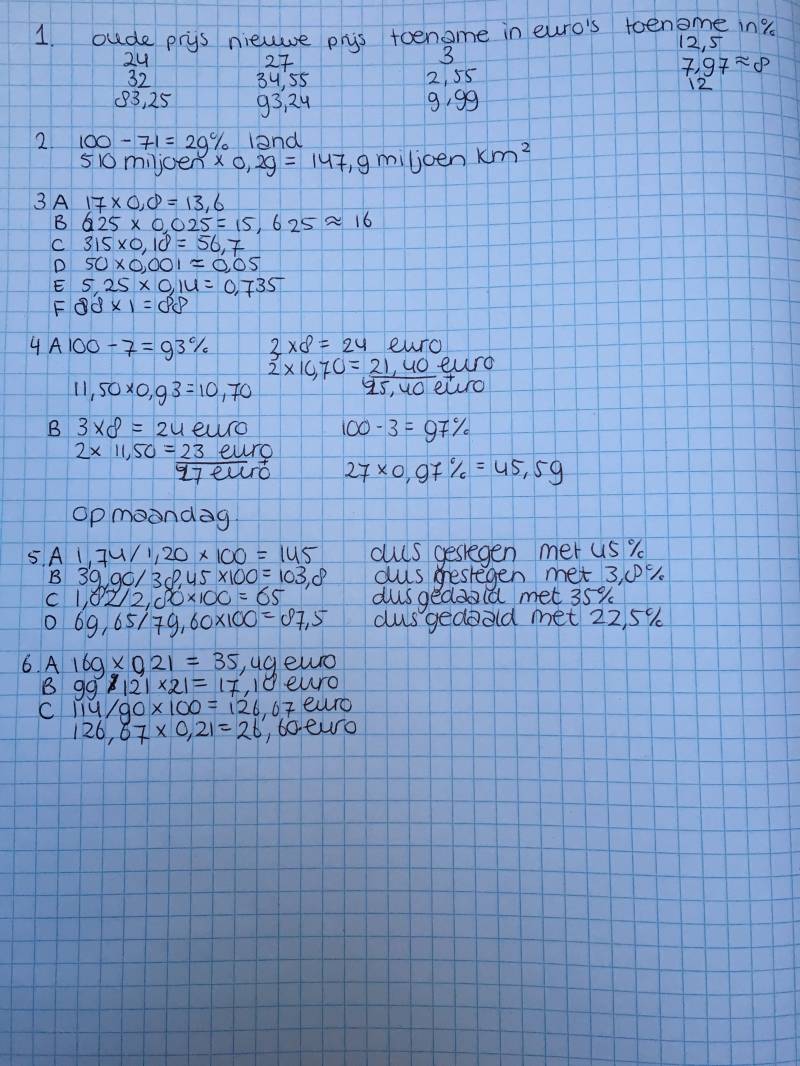 1. oude prijs nieuwe prijs toename in euro's toename in %
24 27 3 12,5
32 34,55 2,55 7,97 ≈ 8
83,25 93,24 9,99 12
2 100 - 71 = 29% land
510 miljoen x 0,29 = 147,9 miljoen km²
3 A 17 x 0,8 = 13,6
B 625 x 0,025 = 15,625 ≈ 16
C 315 x 0,18 = 56,7
D 50 x 0,001 = 0,05
E 5,25 x 0,14 = 0,735
F 88 x 1 = 88
4 A 100 - 7 = 93% 3 x 8 = 24 euro
2 x 10,70 = 21,40 euro
11,50 x 0,93 = 10,70 +
45,40 euro
B 3 x 8 = 24 euro 100 - 3 = 97%
2 x 11,50 = 23 euro +
47 euro 47 x 0,97% = 45,59
Op maandag.
5. A 1,74 / 1,20 x 100 = 145 dus gestegen met 45%
B 39,90 / 38,45 x 100 = 103,8 dus gestegen met 3,8%
C 1,82 / 2,80 x 100 = 65 dus gedaald met 35%
D 69,65 / 79,60 x 100 = 87,5 dus gedaald met 22,5%
6. A 169 x 0,21 = 35,49 euro
B 99 / 121 x 21 = 17,18 euro
C 114 / 90 x 100 = 126,67 euro
126,67 x 0,21 = 26,60 euro